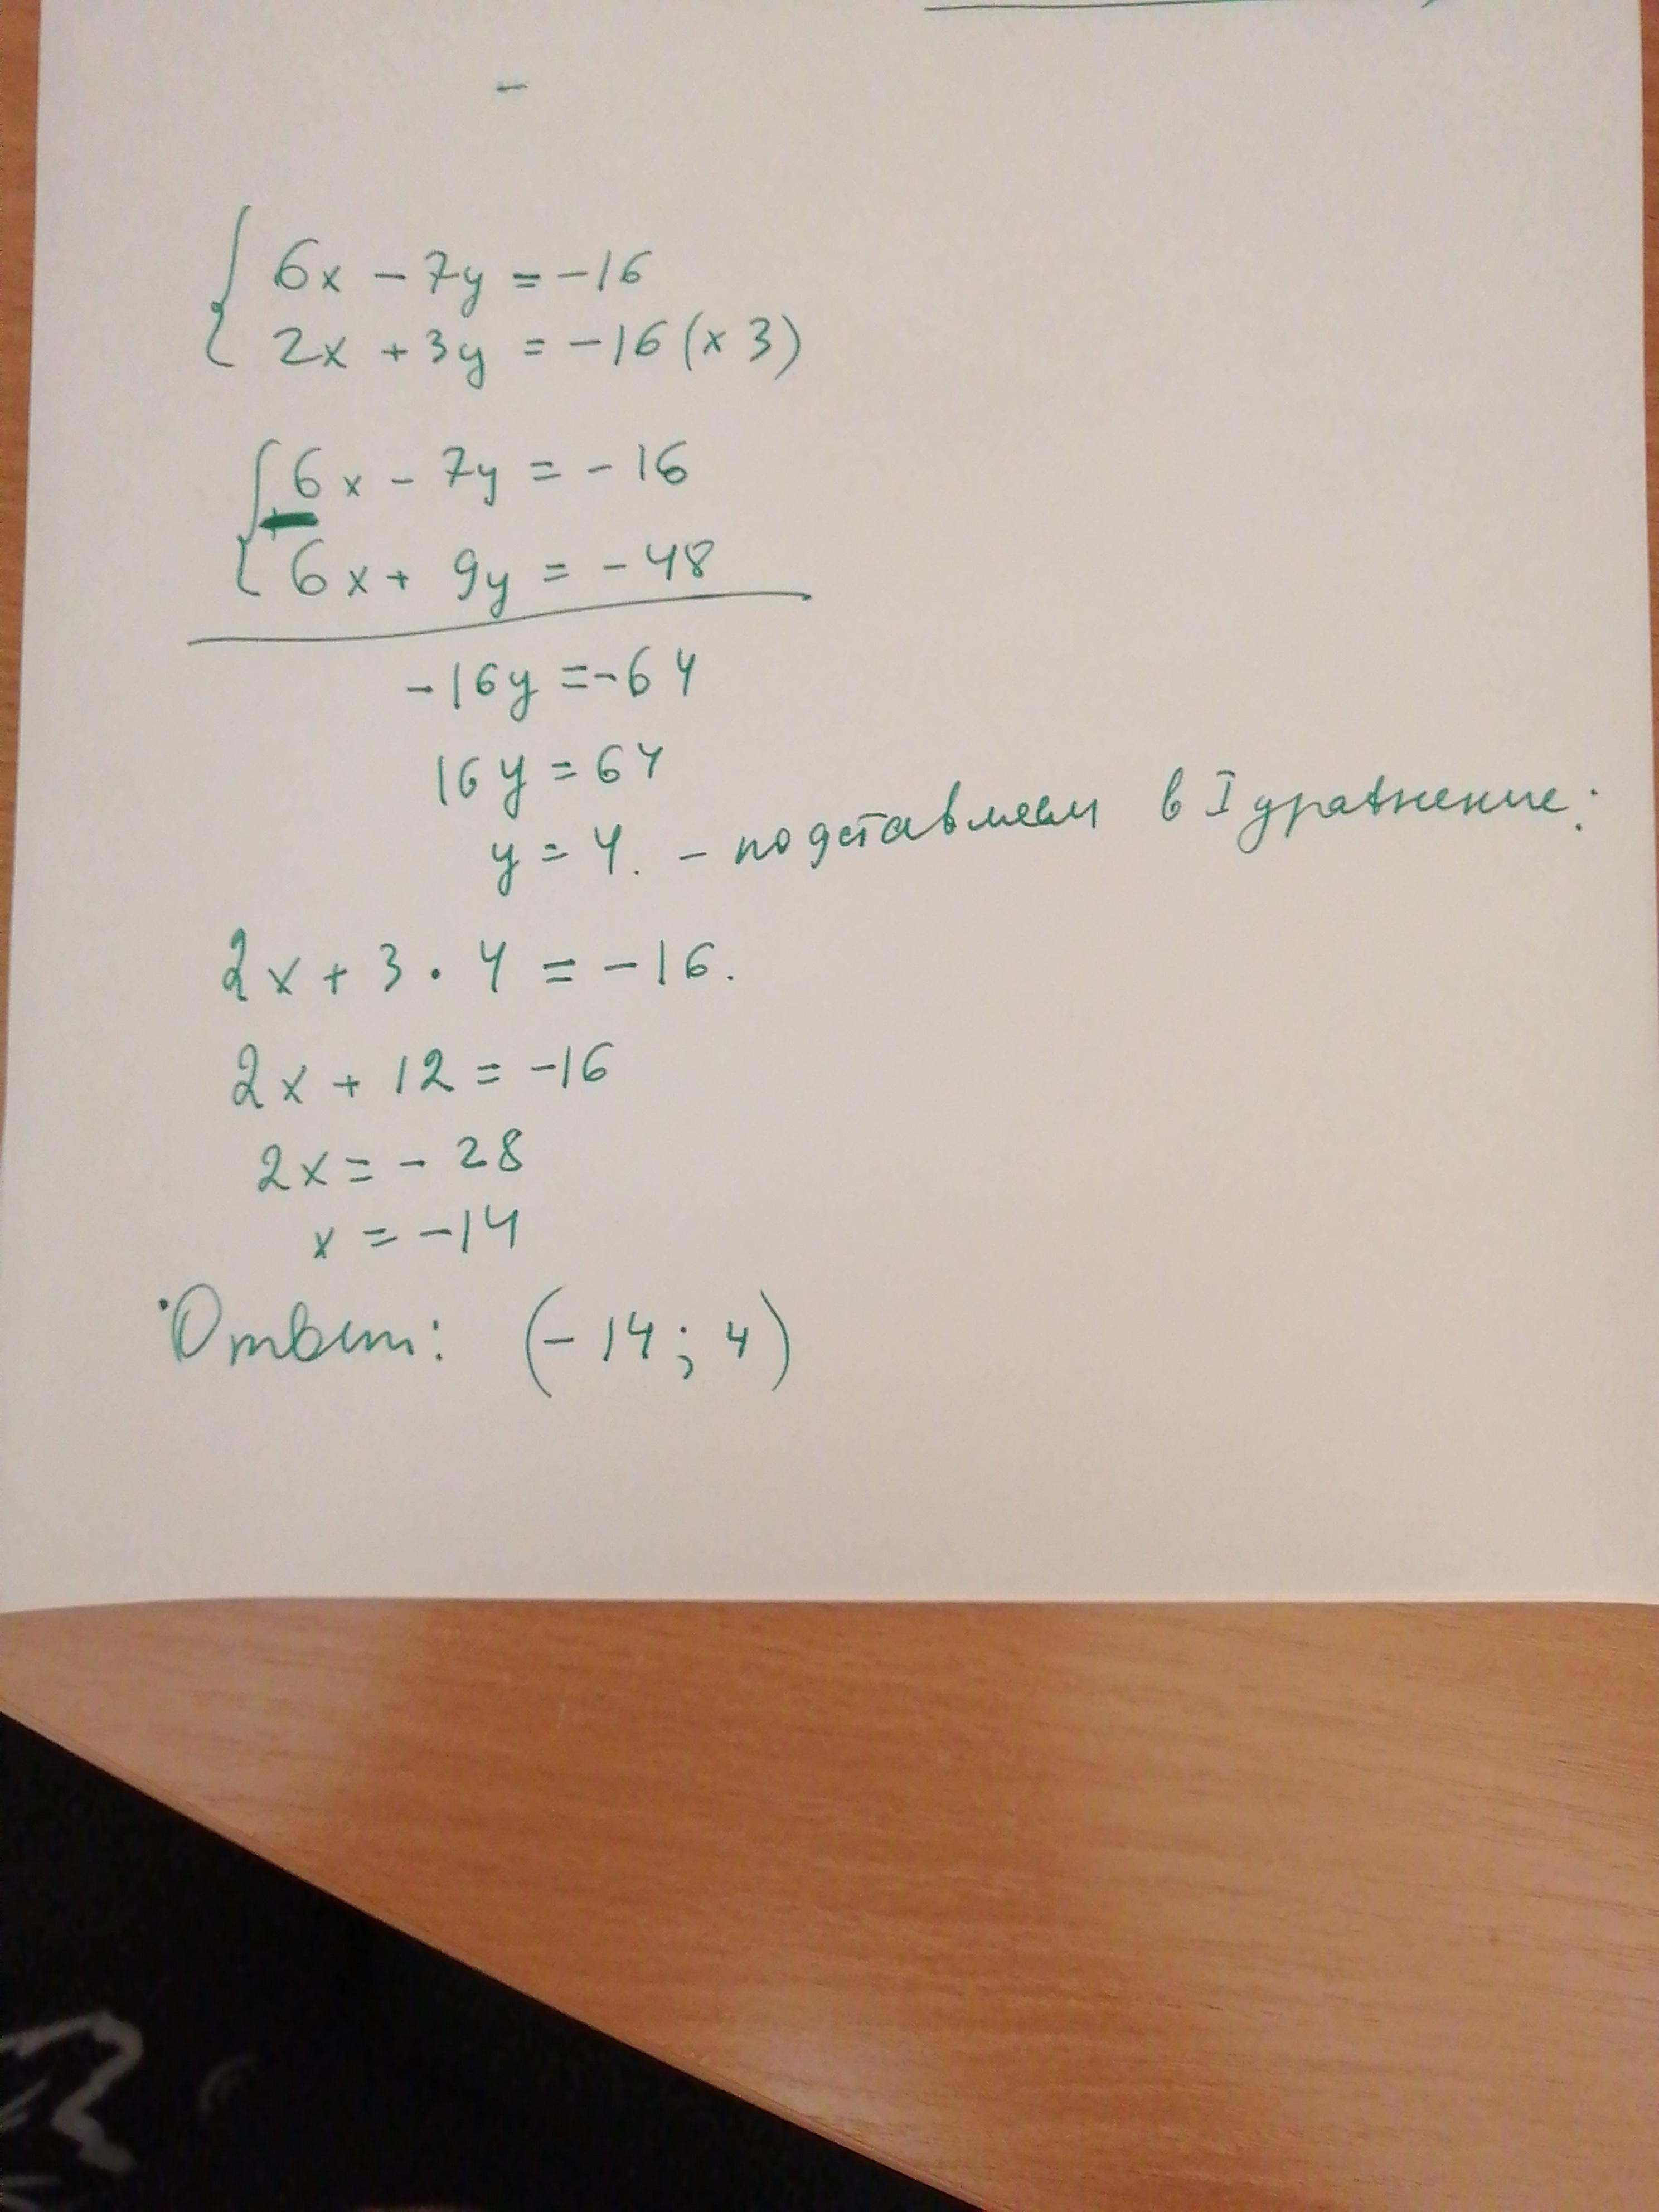 6x - 7y = -16
2x + 3y = -16 (x 3)
6x - 7y = -16
-
6x + 9y = -48
-16y = -64
16y = 64
y = 4. - подставляем в I уравнение:
2x + 3 · 4 = -16.
2x + 12 = -16
2x = - 28
x = -14
Ответ: (-14; 4)